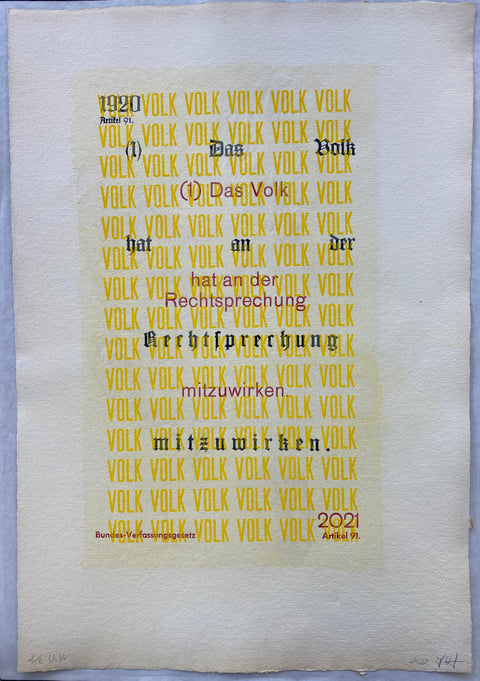 1920
VOLK VOLK VOLK VOLK VOLK VOLK
Artikel 91.
VOLK VOLK VOLK VOLK VOLK VOLK
(1) Das Volk
VOLK VOLK VOLK VOLK VOLK VOLK
(1) Das Volk
VOLK VOLK VOLK VOLK VOLK VOLK
VOLK VOLK VOLK VOLK VOLK VOLK
hat an der
VOLK VOLK VOLK VOLK VOLK VOLK
hat an der
VOLK VOLK VOLK VOLK VOLK VOLK
Rechtsprechung
VOLK VOLK VOLK VOLK VOLK VOLK
Rechtſprechung
VOLK VOLK VOLK VOLK VOLK VOLK
VOLK VOLK VOLK VOLK VOLK VOLK
mitzuwirken.
VOLK VOLK VOLK VOLK VOLK VOLK
VOLK VOLK VOLK VOLK VOLK VOLK
mitzuwirken.
VOLK VOLK VOLK VOLK VOLK VOLK
VOLK VOLK VOLK VOLK VOLK VOLK
2021
VOLK VOLK VOLK VOLK VOLK VOLK
Bundes-Verfassungsgesetz Artikel 91.